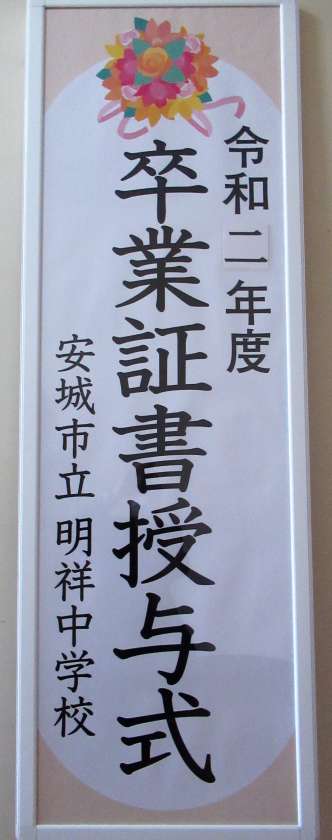 令和二年度
卒業証書授与式
安城市立 明祥中学校